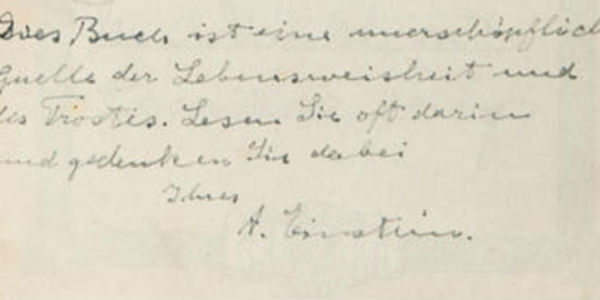 Dies Buch ist eine unerschöpflich
Quelle der Lebensweisheit und
des Trostes. Lesen Sie oft darin
und gedenken Sie dabei
Ihres
A. Einstein.